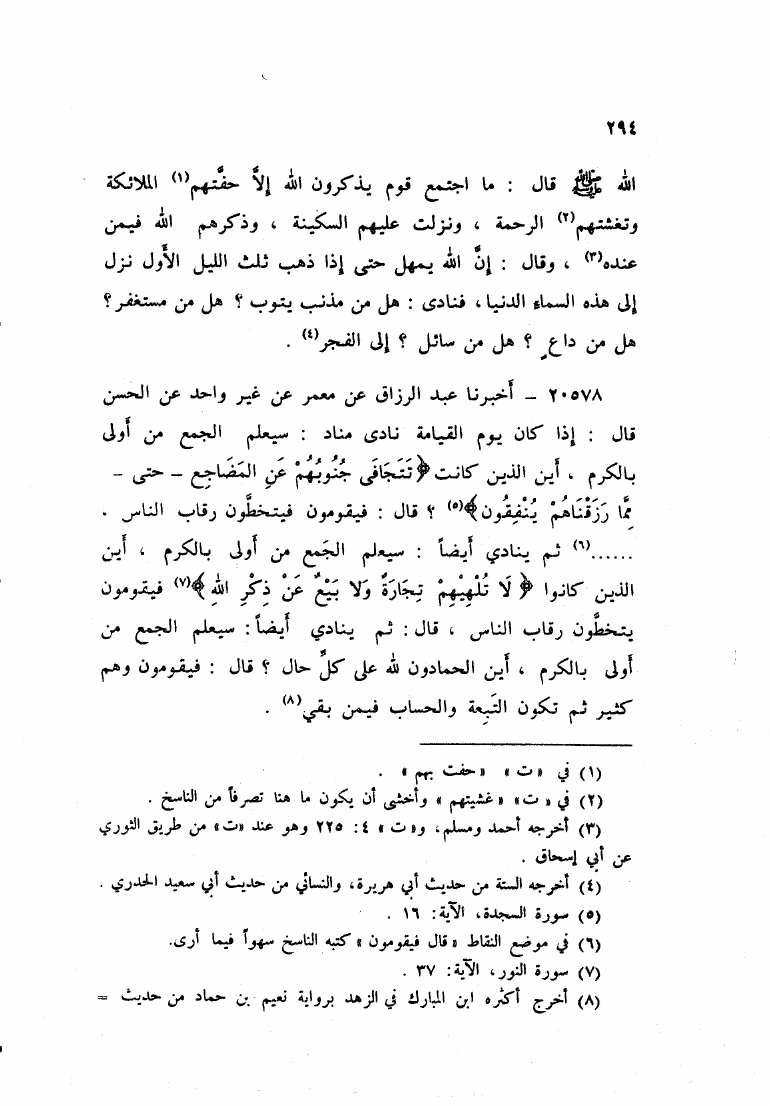 ٢٩٤
الله ﷺ قال : ما اجتمع قوم يذكرون الله إلاَّ حفَّتهم(١) الملائكة
وتغشتهم(٢) الرحمة ، ونزلت عليهم السكينة ، وذكرهم الله فيمن
عنده(٣) ، وقال : إنَّ الله يمهل حتى إذا ذهب ثلث الليل الأول نزل
إلى هذه السماء الدنيا ، فنادى : هل من مذنب يتوب ؟ هل من مستغفر ؟
هل من داعٍ ؟ هل من سائل ؟ إلى الفجر(٤) .
٢٠٥٧٨ – أخبرنا عبد الرزاق عن معمر عن غير واحد عن الحسن
قال : إذا كان يوم القيامة نادى مناد : سيعلم الجمع من أولى
بالكرم ، أين الذين كانت ﴿تَتَجَافَى جُنُوبُهُمْ عَنِ المَضَاجِعِ – حتى –
مِمَّا رَزَقْنَاهُمْ يُنْفِقُون﴾(٥) ؟ قال : فيقومون فيتخطَّون رقاب الناس .
......(٦) ثم ينادي أيضاً : سيعلم الجَمع من أولى بالكرم ، أين
الذين كانوا ﴿ لَا تُلْهِيْهِمْ تِجَارَةٌ وَلَا بَيْعٌ عَنْ ذِكْرِ اللهِ ﴾(٧) فيقومون
يتخطَّون رقاب الناس ، قال : ثم ينادي أيضاً : سيعلم الجمع من
أولى بالكرم ، أين الحمادون لله على كلِّ حال ؟ قال : فيقومون وهم
كثير ثم تكون التَّبِعة والحساب فيمن بقي(٨) .
(١) في «ت» «حفت بهم» .
(٢) في «ت» «غشيتهم» وأخشى أن يكون ما هنا تصرفاً من الناسخ .
(٣) أخرجه أحمد ومسلم، و«ت» ٤: ٢٢٥ وهو عند «ت» من طريق الثوري
عن أبي إسحاق .
(٤) أخرجه الستة من حديث أبي هريرة، والنسائي من حديث أبي سعيد الخدري .
(٥) سورة السجدة، الآية: ١٦ .
(٦) في موضع النقاط «قال فيقومون» كتبه الناسخ سهواً فيما أرى.
(٧) سورة النور، الآية: ٣٧ .
(٨) أخرج أكثره ابن المبارك في الزهد برواية نعيم بن حماد من حديث =